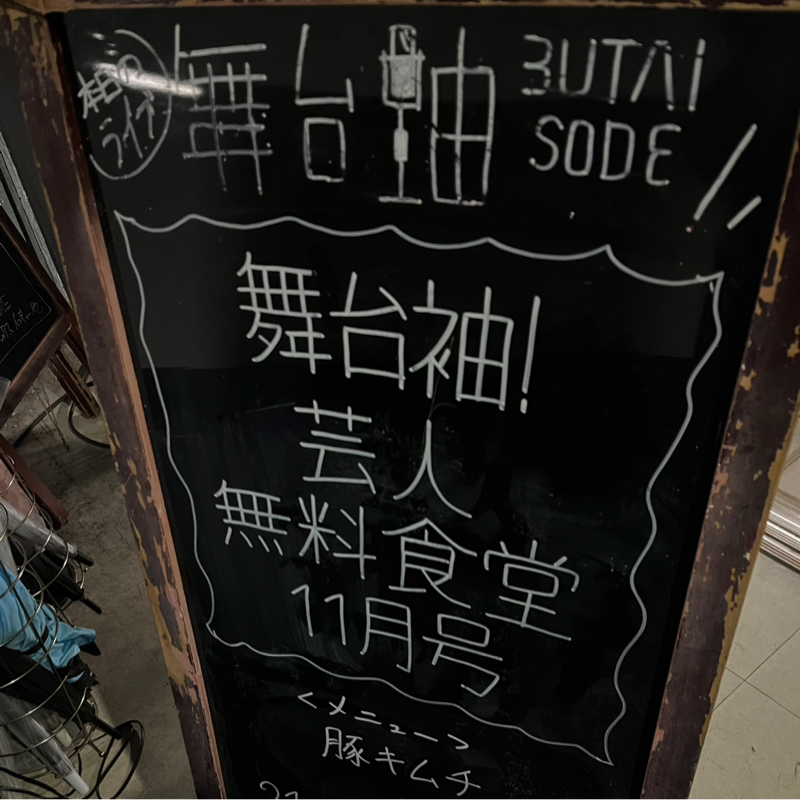 本日のライブ
舞台袖
BUTAI
SODE
舞台袖!
芸人
無料食堂
11月号
<メニュー>
豚キムチ